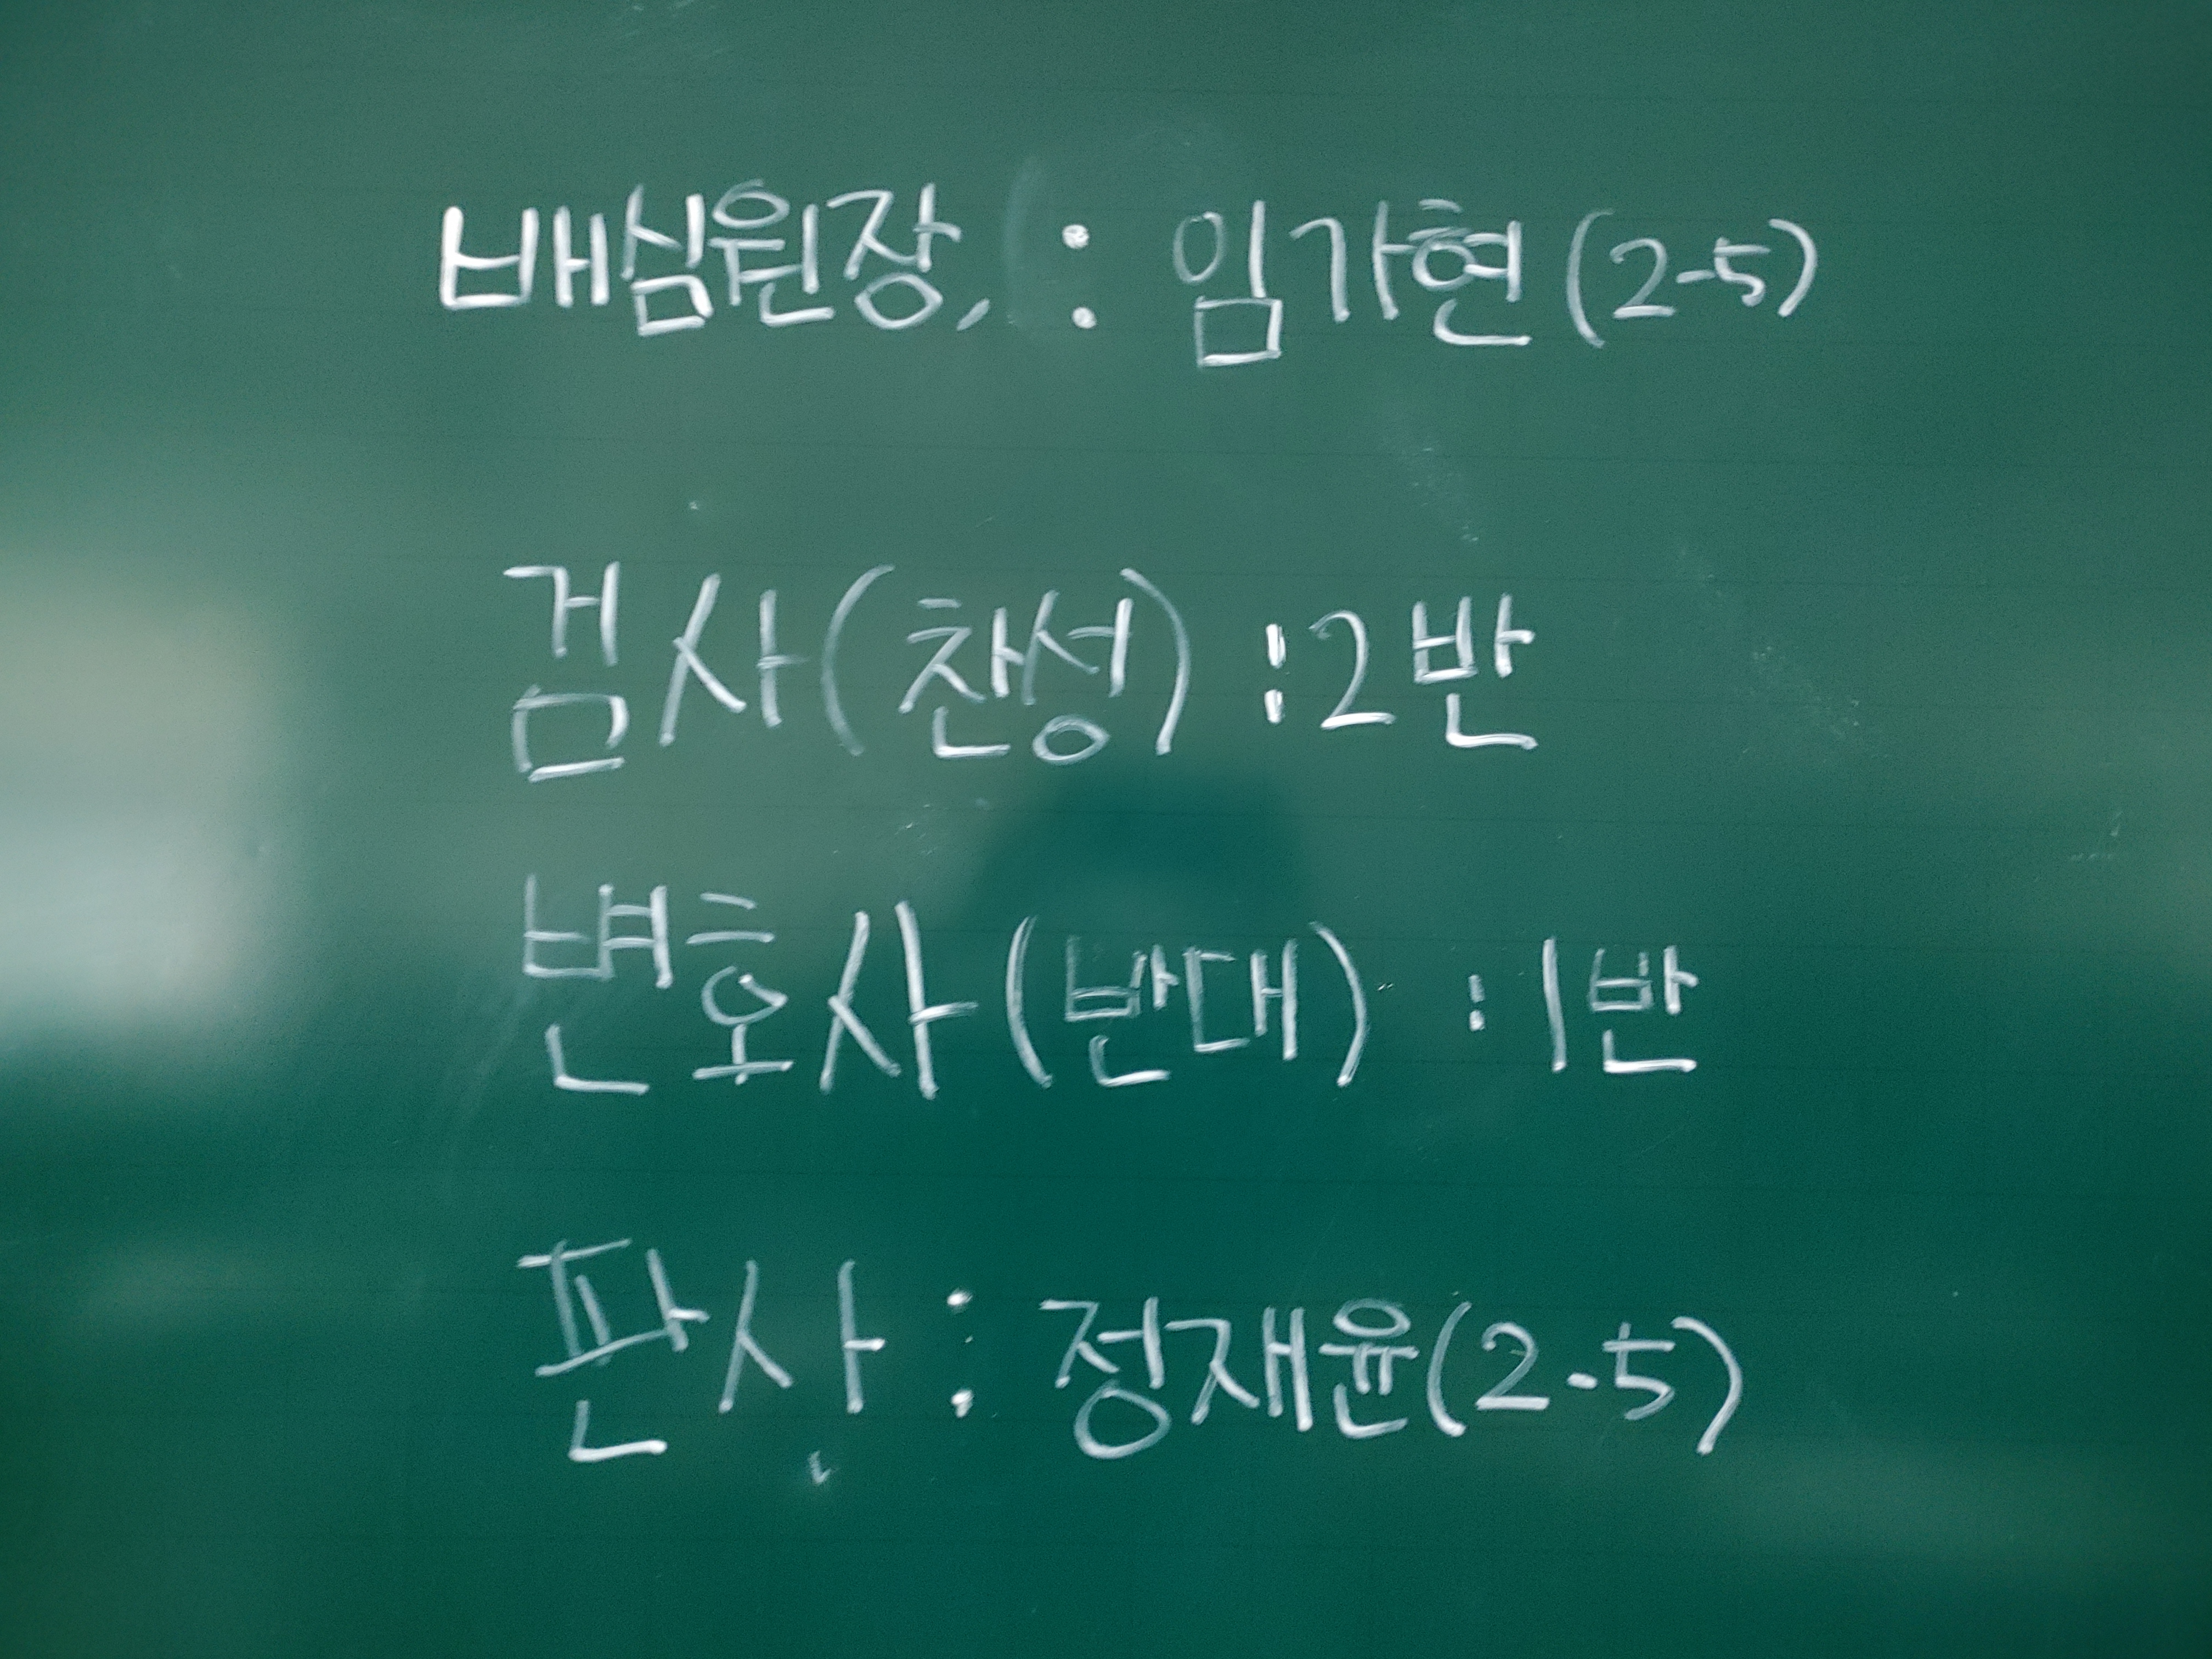 배심원장, : 임가현 (2-5)
검사(찬성) : 2반
변호사(반대) : 1반
판사 : 정재윤(2-5)